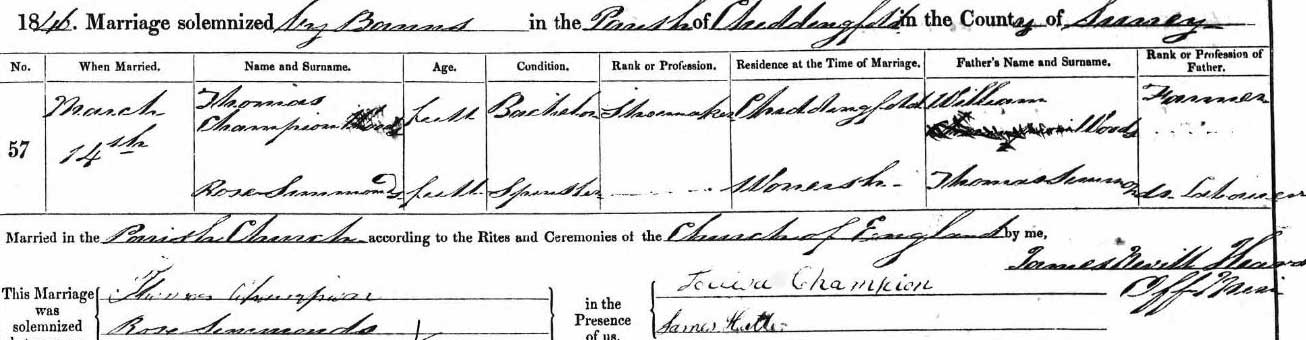 1846. Marriage solemnized by Banns in the Parish of Chiddingfold in the County of Surrey
No. When Married. Name and Surname. Age. Condition. Rank or Profession. Residence at the Time of Marriage. Father's Name and Surname. Rank or Profession of Father.
57 March 14th Thomas Champion full Bachelor Shoemaker Chiddingfold William Woods Farmer
Rose Simmonds full Spinster Wonersh Thomas Simmonds Labourer
Married in the Parish Church according to the Rites and Ceremonies of the Church of England by me,
James Nevill Heard
Off. Min
This Marriage was solemnized Thomas Champion in the Presence of us. Champion
Rose Simmonds James